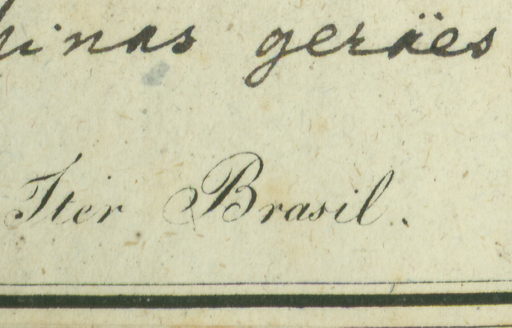 minas geräes
Iter Brasil.